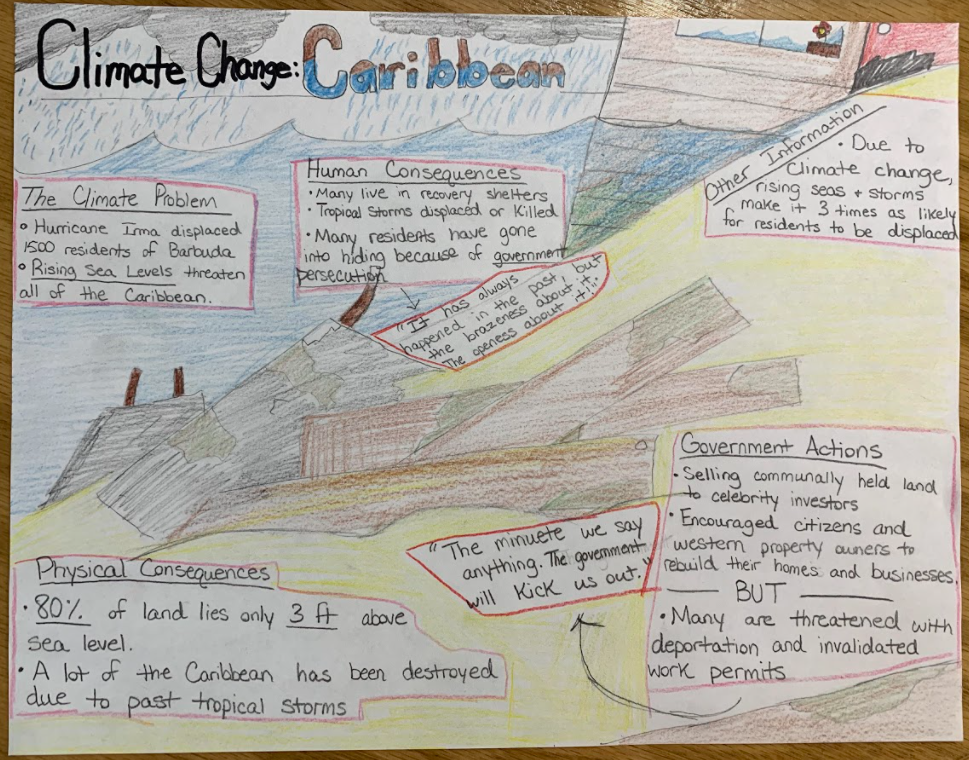 Climate Change: Caribbean
The Climate Problem
• Hurricane Irma displaced
1500 residents of Barbuda
• Rising Sea Levels threaten
all of the Caribbean.
Human Consequences
• Many live in recovery shelters
• Tropical Storms displaced or Killed
• Many residents have gone
into hiding because of government
persecution
"It has always
happened in the past, but
the brazeness about it.
The openess about it!"
Other Information
• Due to
Climate change,
rising seas + storms
make it 3 times as likely
for residents to be displaced
Government Actions
• Selling communally held land
to celebrity investors
• Encouraged citizens and
western property owners to
rebuild their homes and businesses,
BUT
• Many are threatened with
deportation and invalidated
work permits
"The minuete we say
anything. The government
will Kick us out."
Physical Consequences
• 80% of land lies only 3 ft above
sea level.
• A lot of the Caribbean has been destroyed
due to past tropical storms